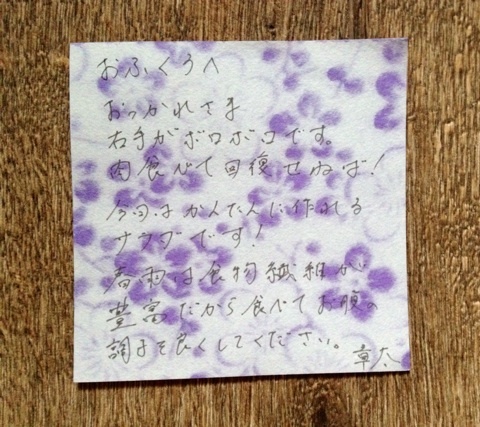 おふくろへ
おつかれさま
右手がボロボロです。
肉食べて回復せねば!
今回はかんたんに作れる
サラダです!
春雨は食物繊維が
豊富だから食べてお腹の
調子を良くしてください。
章太